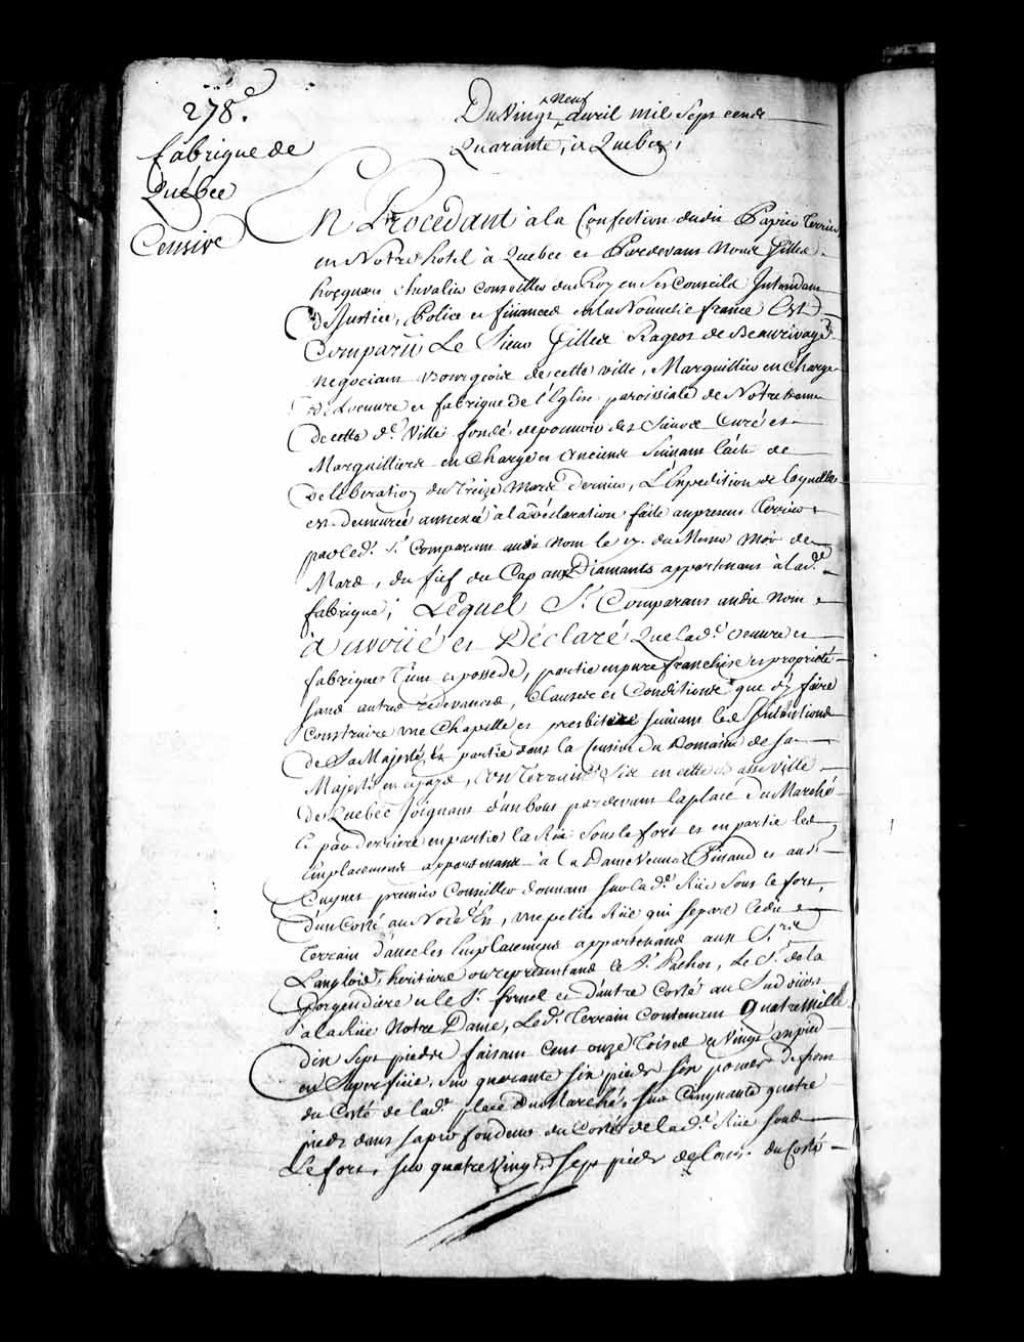 278e.
Fabrique de
Québec
Censive
Du Vingt neuf avril mil Sept cent
Quarante, à Quebec,
EN Procedant à la Confection dudit Papier Terrier
en Notre hotel à Quebec et Pardevant Nous Gilles
hocquart chevalier Conseiller du Roy en Ses Conseils Intendant
de Justice, Police et finances en la Nouvelle france Est
Comparu Le Sieur Gilles Rageot de Beaurivage
Negociant Bourgeois de cette ville, Marguillier en Charge
de L'oeuvre et fabrique de l'Eglise paroissiale de Notre Dame
de cette de. Ville fondé de pouvoir des Sieurs Curé et
Marguilliers en Charge et Anciens Suivant l'acte de
deliberation du Treize Mars dernier, L'Expedition de laquelle
est demeurée annexée à la déclaration faite au present Terrier
par led. Sr. Comparant audit Nom le du Mesme Mois de
Mars, du fief du Cap aux Diamants appartenant à lade.
fabrique; Lequel Sr. Comparant audit Nom
à avoüé et Déclaré Que lade. oeuvre et
fabrique Tient et possede, partie en pure franchise et proprieté
Sans autres redevances, Clauses et Conditions que d'y faire
Construire une Chapelle et presbitere suivant les Intentions
de Sa Majesté, Et partie dans la Censive du Domaine de Sa
Majesté en ce pays, UN Terrain Sis en cette basse Ville
de Quebec Joignant d'un bout pardevant la place du Marché
Et par derriere en partie la Rüe Sous le fort et en partie les
Emplacements appartenant à la Dame Veuve Pinaud et au Sr.
Cugnet premier Conseiller donnant sur lade. Rüe Sous le fort,
d'un Costé au Nord Est, une petite Rüe qui Separe ledit
Terrain d'avec les Emplacements appartenants aux Srs.
Langlois, heritiers ou representans le Sr. Pachot, Le Sr. de la
Gorgendiere et le Sr. fornel et d'autre Costé au Sud oüest
à la Rüe Notre Dame, Led. Terrain Contenant Quatre Mille
dix Sept pieds faisant Cent onze Toises et Vingt un pied
en Superficie, Sur quarante Six pieds Six pouces de front
du Costé de lade. place du Marché, Sur Cinquante quatre
pieds dans sa profondeur du Costé de lade. Rüe Sous
Le fort, Sur quatre Vingt Sept pieds de du Costé